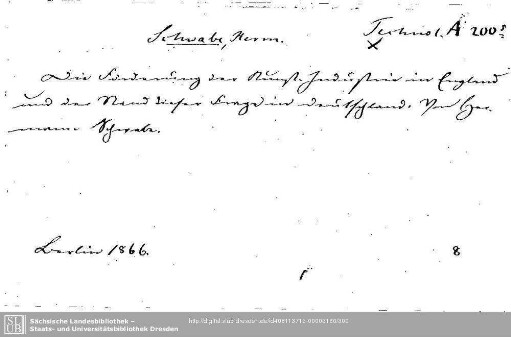 Schwabe, Herm. Technol. A 200 s
Die Förderung der Kunst-Industrie in England
und der Stand dieser Frage in Deutschland. Von Her-
mann Schwabe.
Berlin 1866. 8
SLUB Sächsische Landesbibliothek –
Staats- und Universitätsbibliothek Dresden